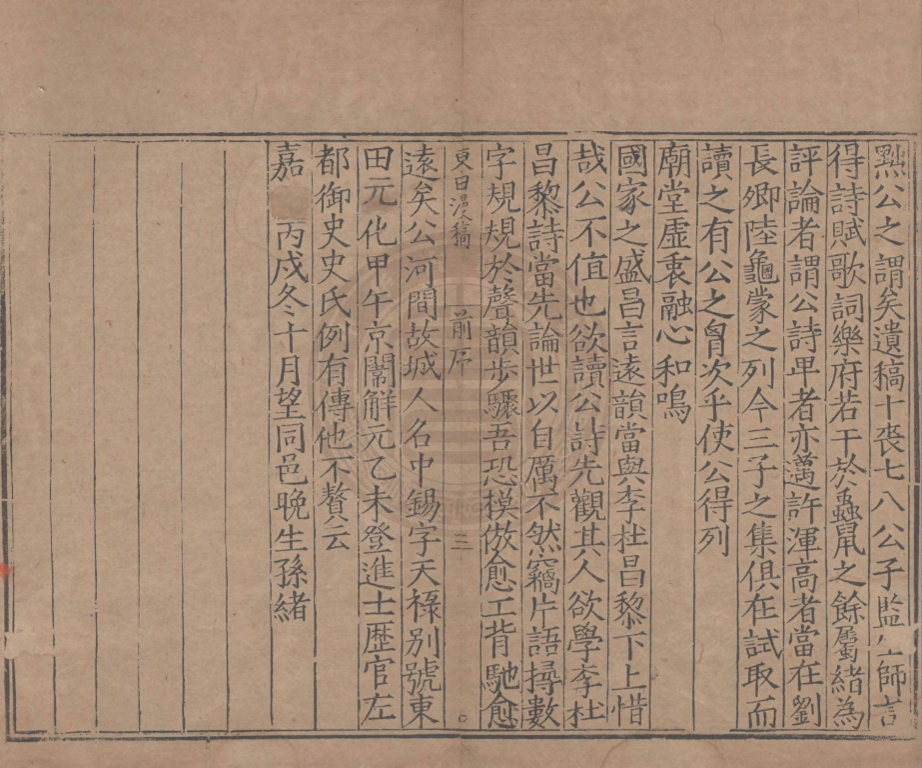 點公之謂矣遺稿十喪七八公子監生師言
得詩賦歌詞樂府若干於蠹鼠之餘屬緒為
評論者謂公詩卑者亦邁許渾高者當在劉
長卿陸龜蒙之列今三子之集俱在試取而
讀之有公之胷次乎使公得列
廟堂虛衷融心和鳴
國家之盛昌言遠韻當與李杜昌黎下上惜
哉公不值也欲讀公詩先觀其人欲學李杜
昌黎詩當先論世以自厲不然竊片語撏數
字規規於聲韻步驟吾恐模倣愈工背馳愈
東田漫稿 前序 三
遠矣公河間故城人名中錫字天祿別號東
田元化甲午京闈解元乙未登進士歷官左
都御史史氏例有傳他不贅云
嘉 丙戌冬十月望同邑晚生孫緒